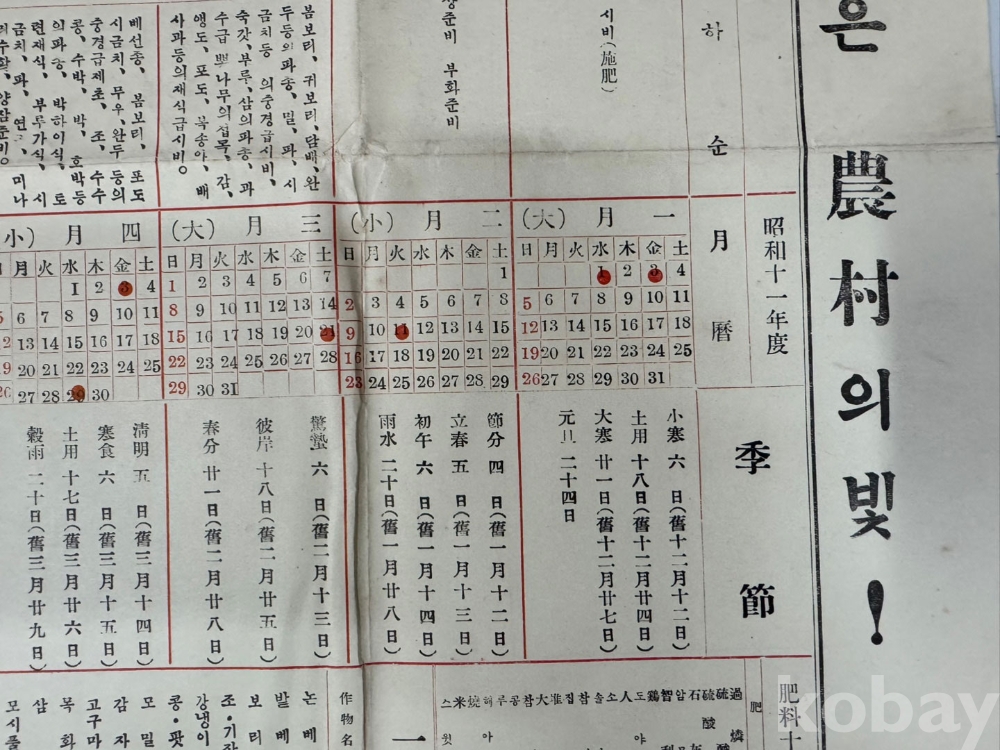 은 農村의 빛!
하순
시비(施肥)
준비 부화준비
봄보리, 귀보리, 담배, 완
두등의파종, 밀, 파, 시
금치등 의중경급시비,
숙갓, 부루, 삼의파종, 과
수급 뽀나무의접목, 감,
앵도, 포도, 복송아, 배
사과등의재식급시비。
베선종, 봄보리, 포도
시금치, 무우, 완두 등의
중경급제초, 조, 수수
콩, 수박, 박, 호박등
의파종, 박하이식, 토
련재식, 부루가식, 시
금치, 파, 미나
昭和十一年度
月曆
一月(大)
日 月 火 水 木 金 土
1 2 3 4
5 6 7 8 9 10 11
12 13 14 15 16 17 18
19 20 21 22 23 24 25
26 27 28 29 30 31
二月(小)
日 月 火 水 木 金 土
1
2 3 4 5 6 7 8
9 10 11 12 13 14 15
16 17 18 19 20 21 22
23 24 25 26 27 28 29
三月(大)
日 月 火 水 木 金 土
1 2 3 4 5 6 7
8 9 10 11 12 13 14
15 16 17 18 19 20 21
22 23 24 25 26 27 28
29 30 31
四月(小)
日 月 火 水 木 金 土
1 2 3 4
5 6 7 8 9 10 11
12 13 14 15 16 17 18
19 20 21 22 23 24 25
26 27 28 29 30
季節
小寒 六 日(舊十二月十二日)
土用 十八日(舊十二月廿四日)
大寒 廿一日(舊十二月廿七日)
元旦 二十四日
節分 四 日(舊一月十二日)
立春 五 日(舊一月十三日)
初午 六 日(舊一月十四日)
雨水 二十日(舊一月廿八日)
驚蟄 六 日(舊二月十三日)
彼岸 十八日(舊二月廿五日)
春分 廿一日(舊二月廿八日)
淸明 五 日(舊三月十四日)
寒食 六 日(舊三月十五日)
土用 十七日(舊三月廿六日)
穀雨 二十日(舊三月廿九日)
肥料十
肥
過燐
硫酸
石灰
作物名
논베
발베
보리
조·기장
강냉이
콩·팟
모밀
감자
고구마
목화
삼
모시풀
kobay